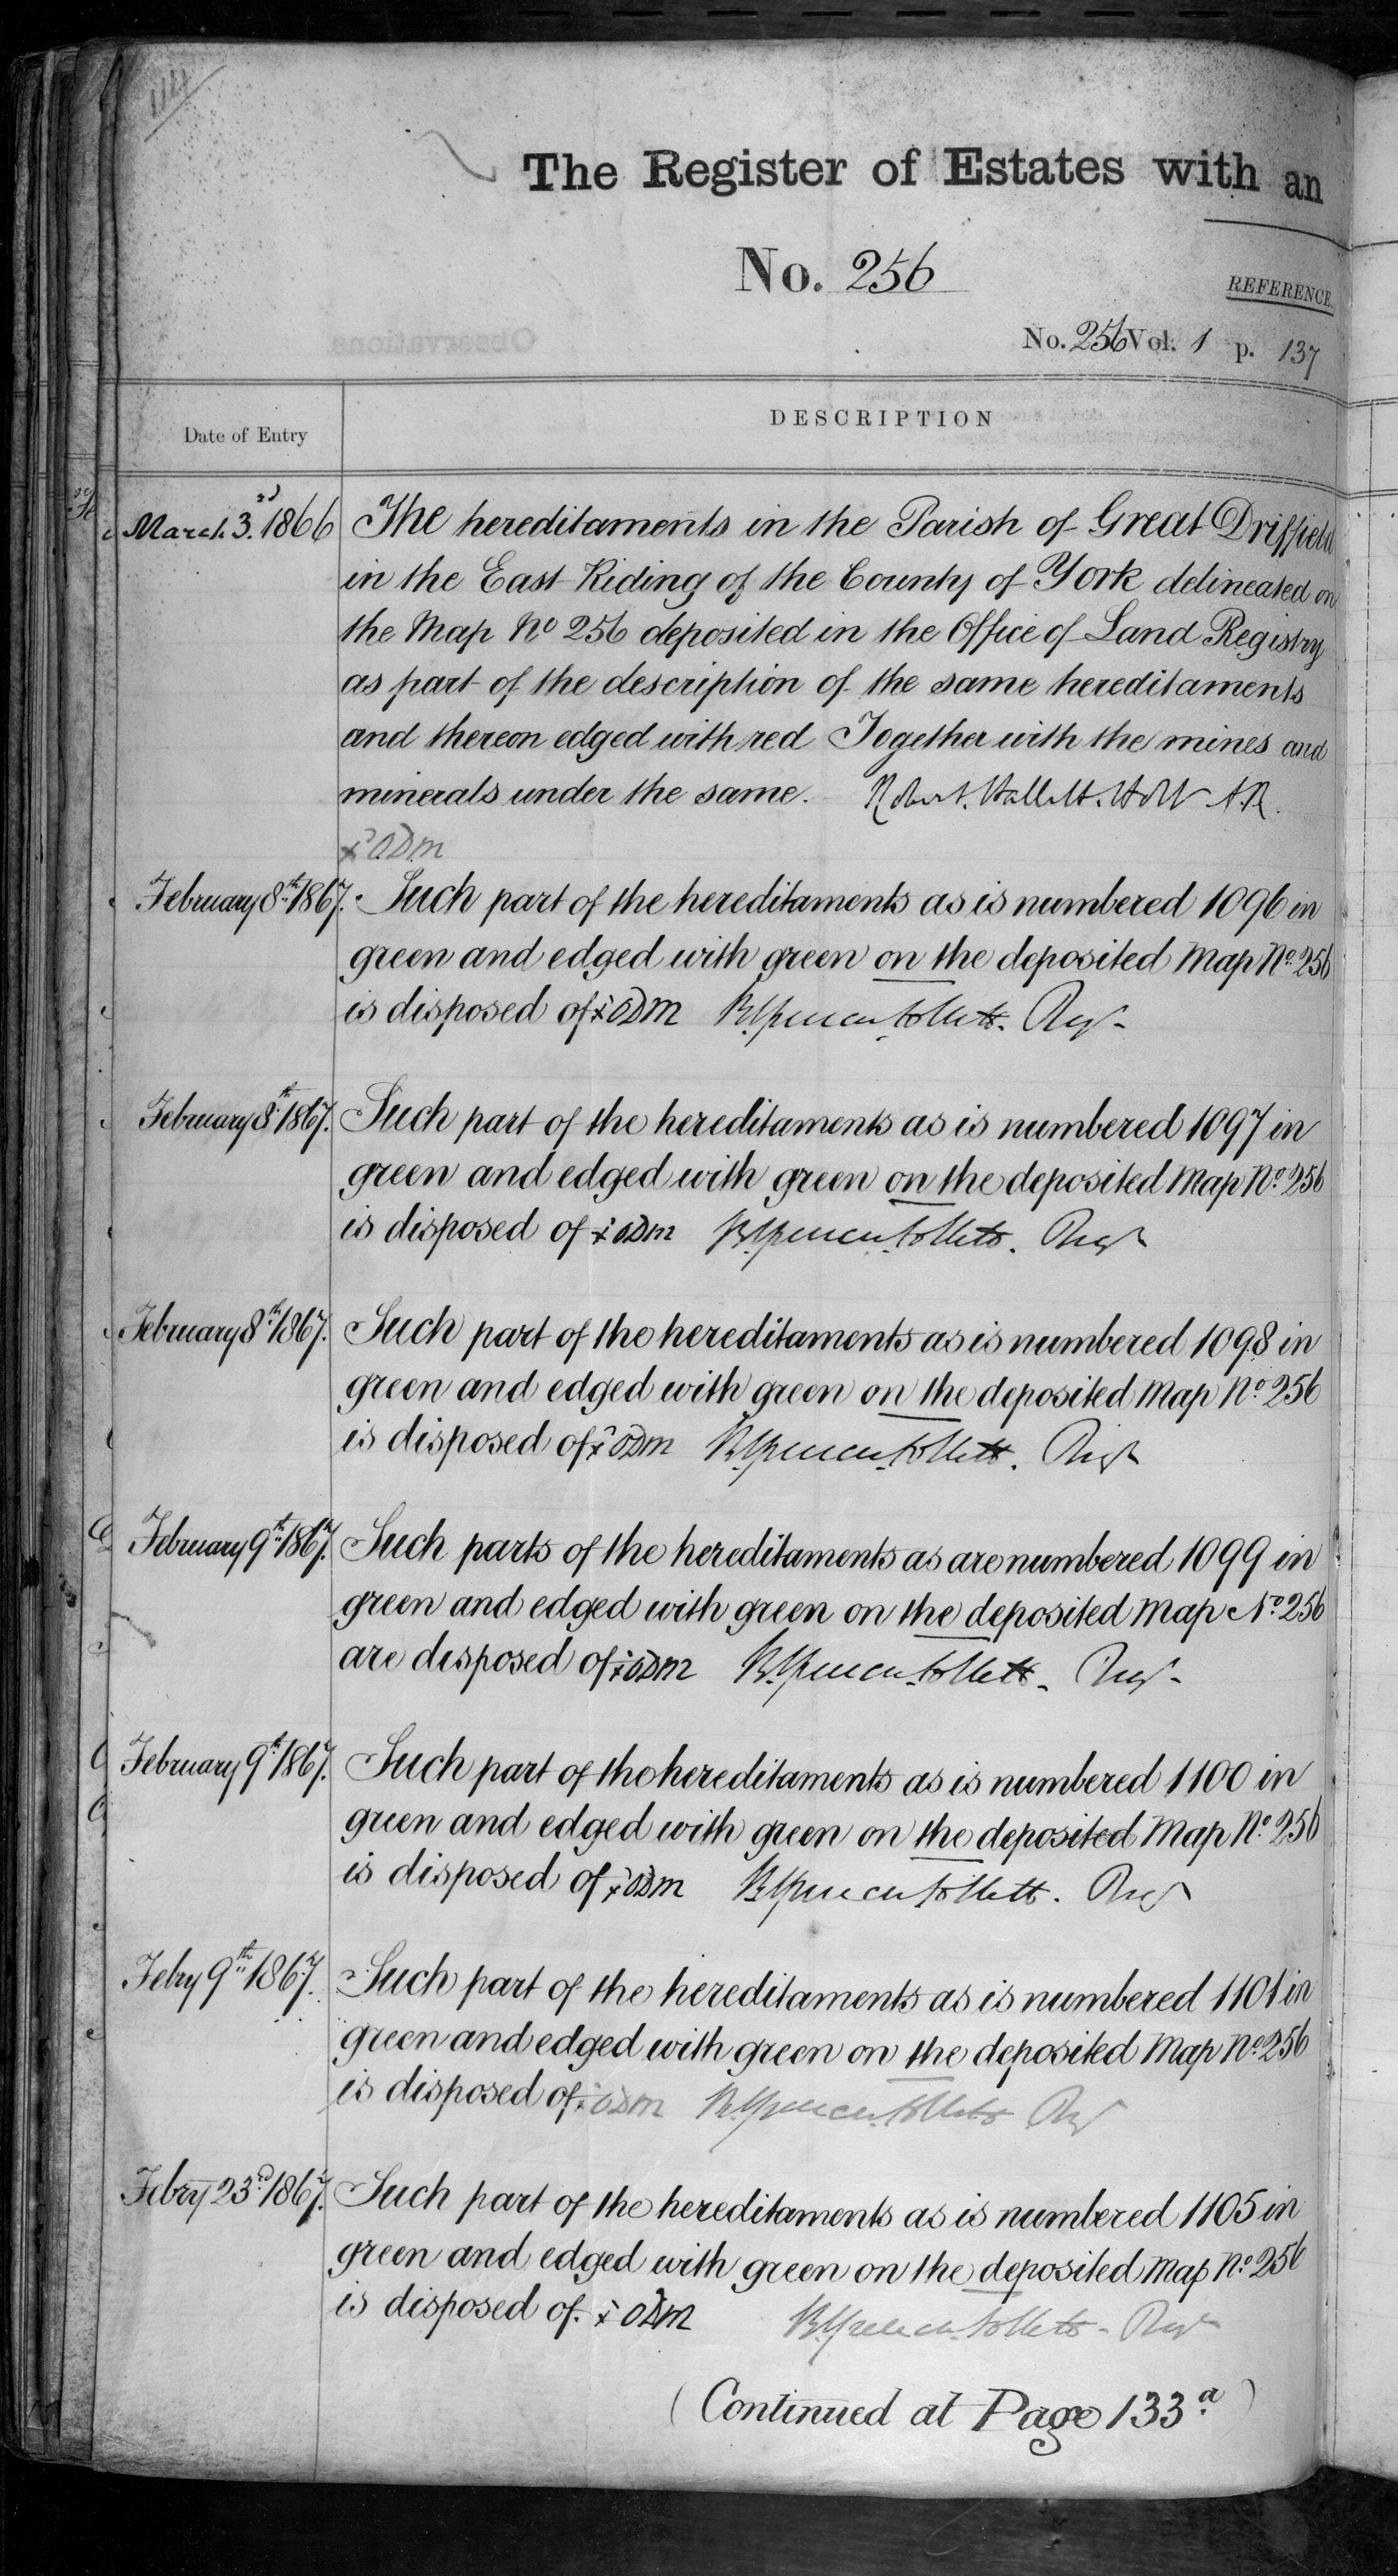 The Register of Estates with an
No. 256
REFERENCE
No. 256 Vol. 1 p. 137
Date of Entry
DESCRIPTION
March 3rd 1866 The hereditaments in the Parish of Great Driffield
in the East Riding of the County of York delineated on
the Map No 256 deposited in the Office of Land Registry
as part of the description of the same hereditaments
and thereon edged with red Together with the mines and
minerals under the same. Robert Hallett Holt A.R.
x ODM
February 8th 1867. Such part of the hereditaments as is numbered 1096 in
green and edged with green on the deposited Map No. 256
is disposed of x ODM B. Spencer Follett. Regr
February 8th 1867. Such part of the hereditaments as is numbered 1097 in
green and edged with green on the deposited Map No. 256
is disposed of x ODM B. Spencer Follett. Regr
February 8th 1867. Such part of the hereditaments as is numbered 1098 in
green and edged with green on the deposited Map No. 256
is disposed of x ODM B. Spencer Follett. Regr
February 9th 1867. Such parts of the hereditaments as are numbered 1099 in
green and edged with green on the deposited Map No. 256
are disposed of x ODM B. Spencer Follett. Regr
February 9th 1867. Such part of the hereditaments as is numbered 1100 in
green and edged with green on the deposited Map No. 256
is disposed of x ODM B. Spencer Follett. Regr
Febry 9th 1867. Such part of the hereditaments as is numbered 1101 in
green and edged with green on the deposited Map No. 256
is disposed of x ODM B. Spencer Follett Regr
Febry 23rd 1867. Such part of the hereditaments as is numbered 1105 in
green and edged with green on the deposited Map No. 256
is disposed of. x ODM B. Spencer Follett. Regr
(Continued at Page 133a)